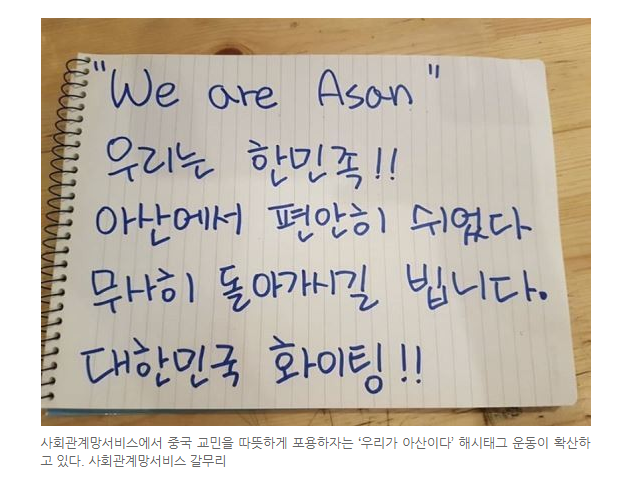 "We are Asan"
우리는 한민족!!
아산에서 편안히 쉬었다
무사히 돌아가시길 빕니다.
대한민국 화이팅!!
사회관계망서비스에서 중국 교민을 따뜻하게 포용하자는 ‘우리가 아산이다’ 해시태그 운동이 확산하
고 있다. 사회관계망서비스 갈무리